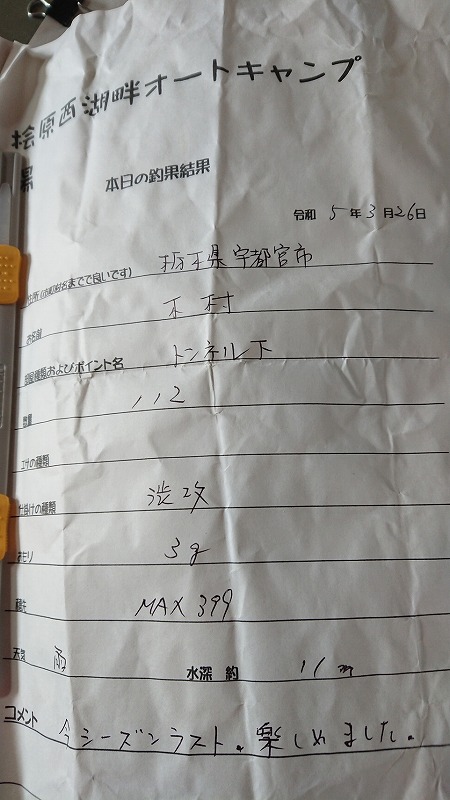 桧原西湖畔オートキャンプ
本日の釣果結果
令和 5年3月26日
住所(市町村名までで良いです) 栃木県宇都宮市
お名前 木村
部屋種類およびポイント名 トンネル下
数量 112
エサの種類
仕掛けの種類 渋攻
おもり 3g
穂先 MAX 399
天気 雨 水深 約 11m
コメント 今シーズンラスト。楽しめました。